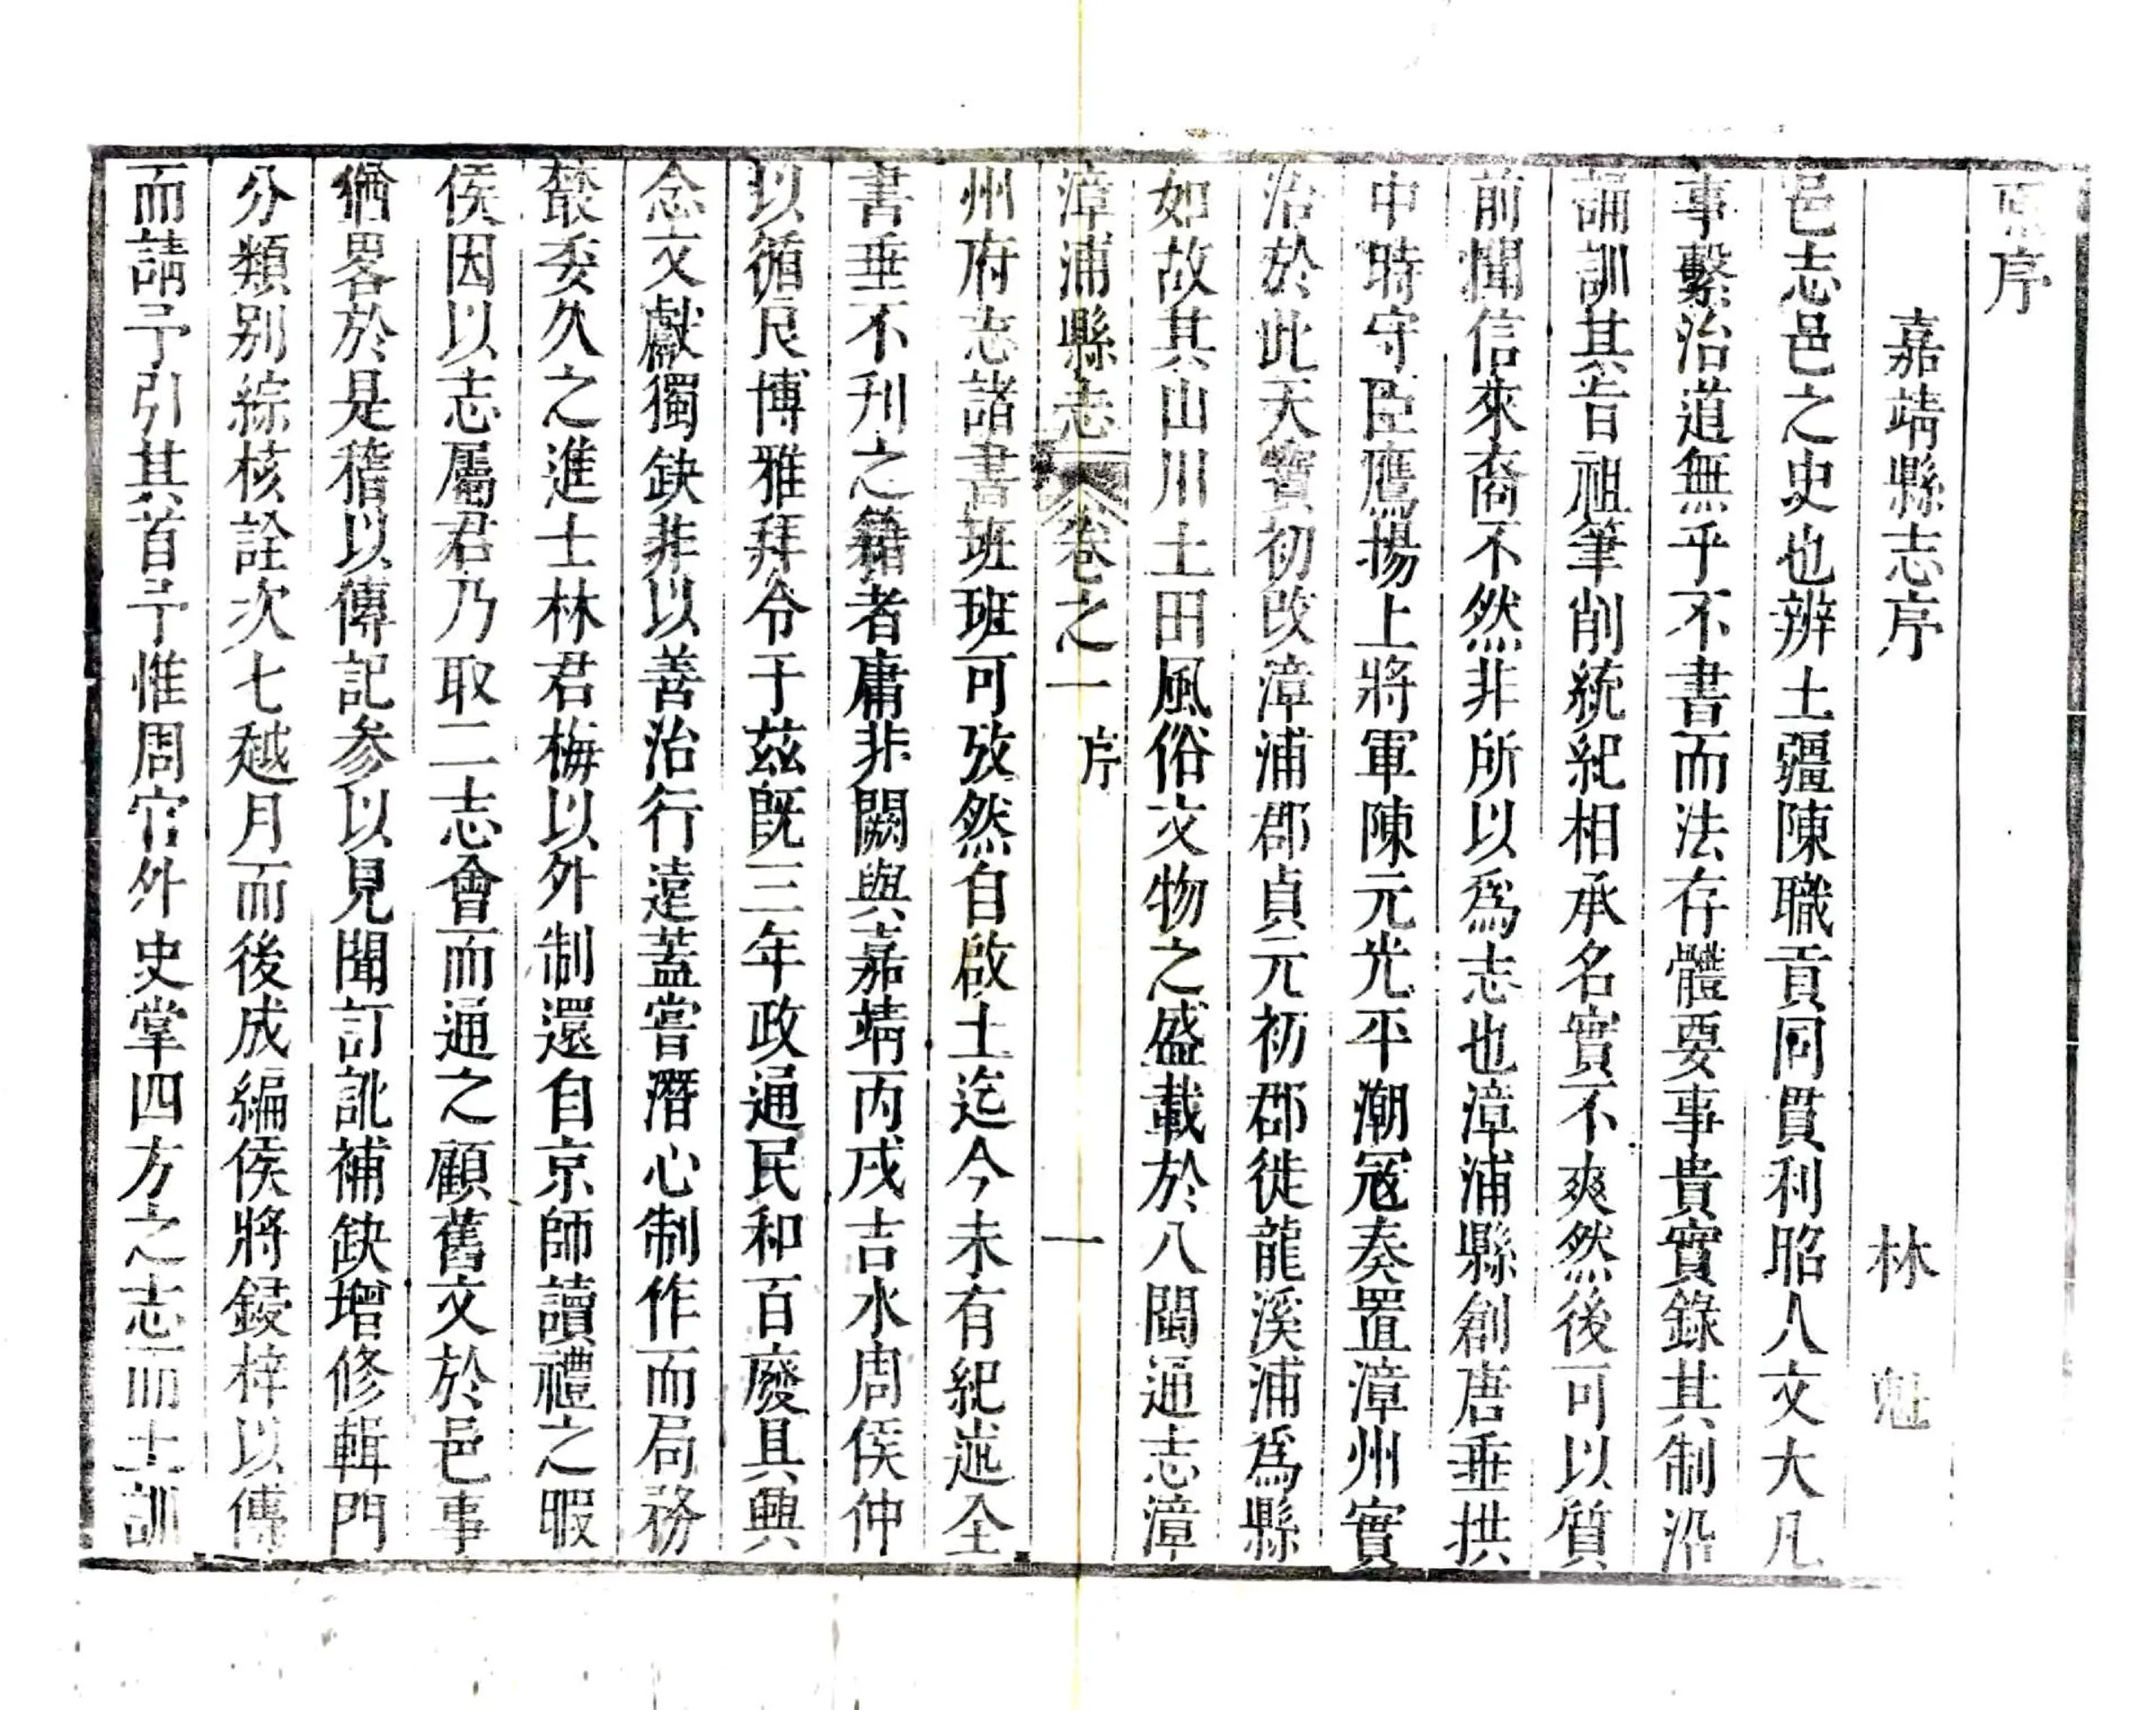 原序
嘉靖縣志序 林 魁
邑志邑之史也辨土疆陳職貢同貫利昭人文大凡
事繫治道無乎不書而法存體要事貴實錄其制沿
誦訓其旨祖筆削統紀相承名實不爽然後可以質
前聞信來裔不然非所以爲志也漳浦縣創唐垂拱
中時守臣鷹揚上將軍陳元光平潮寇奏置漳州實
治於此天寶初改漳浦郡貞元初郡徙龍溪浦爲縣
如故其山川土田風俗文物之盛載於八閩通志漳
漳浦縣志 卷之一 序 一
州府志諸書班班可攷然自啟土迄今未有紀述全
書垂不刊之籍者庸非闕與嘉靖丙戌吉水周侯仲
以循良博雅拜令于茲既三年政通民和百廢具興
念文獻獨缺非以善治行遠蓋嘗潛心制作而局務
叢委久之進士林君梅以外制還自京師讀禮之暇
侯因以志屬君乃取二志會而通之顧舊文於邑事
猶畧於是稽以傳記參以見聞訂訛補缺增修輯門
分類別綜核詮次七越月而後成編侯將鋟梓以傳
而請予引其首予惟周官外史掌四方之志而土訓